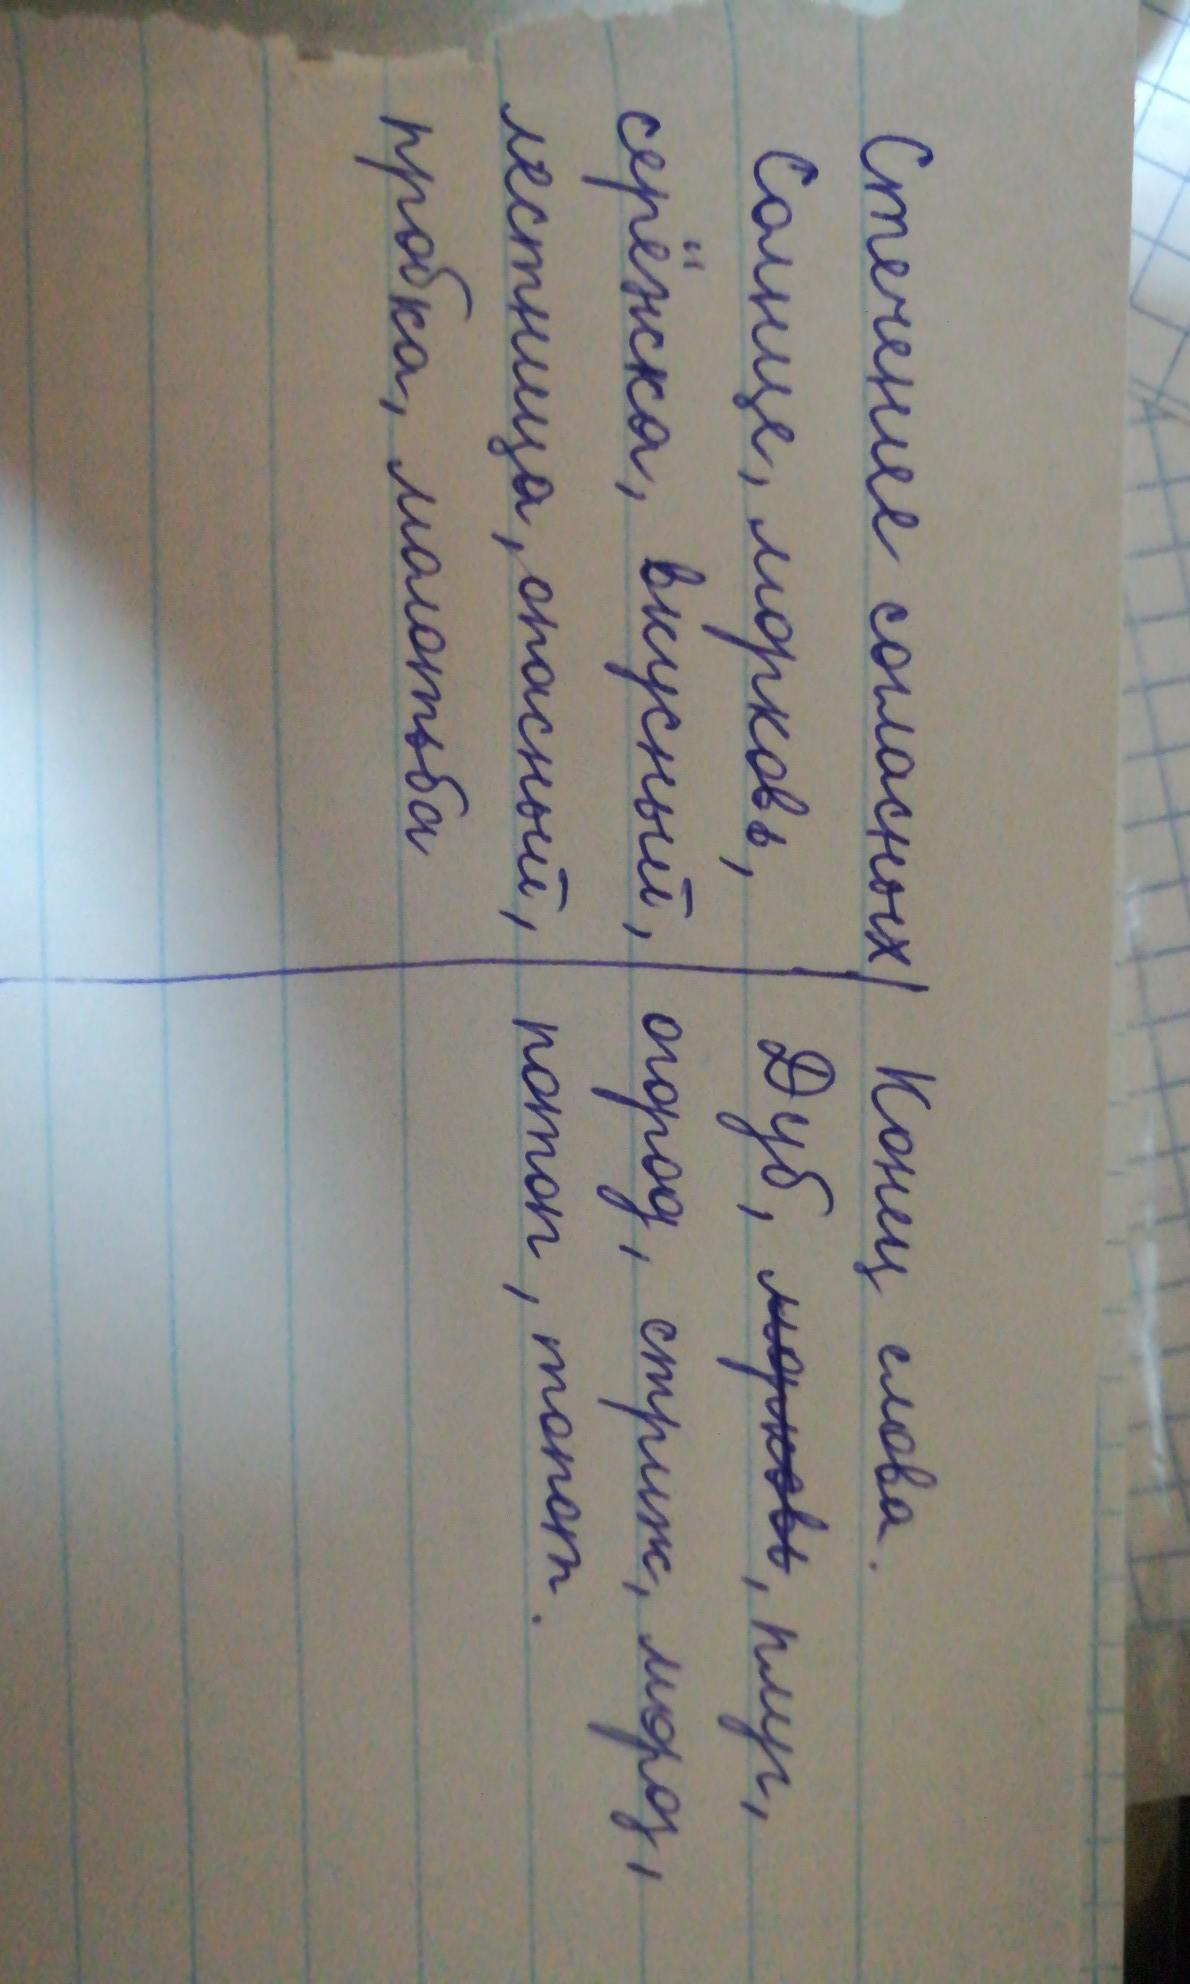 Стечение согласных | Конец слова.
Солнце, морковь, Дуб, морковь, плуг,
серёжка, вкусный, огород, стриж, мороз,
лестница, опасный, потоп, топот.
пробка, молотьба